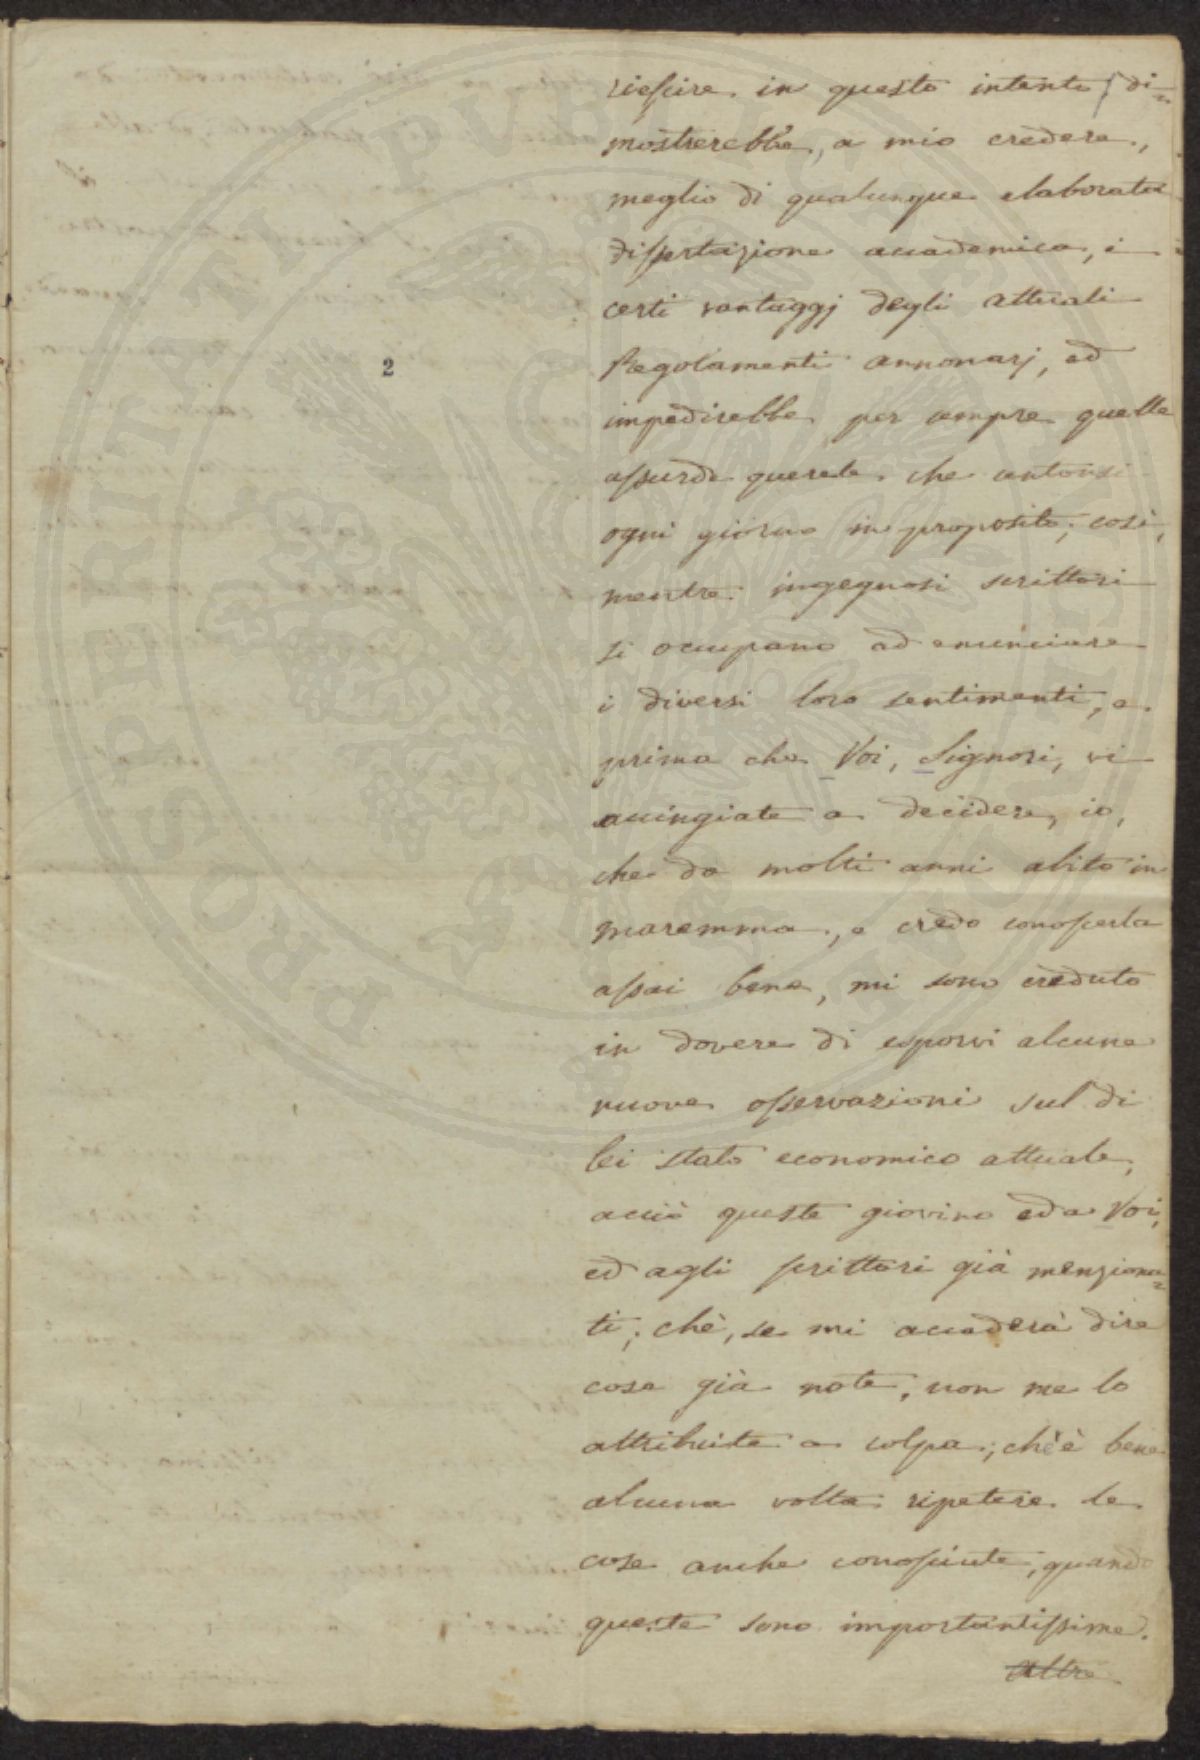 riescire in questo intento, di=
mostrerebbe, a mio credere,
meglio di qualunque elaborata
dissertazione accademica, i
certi vantaggj degli attuali
Regolamenti annonarj, ed
2
impedirebbe per sempre quelle
assurde querele che sentonsi
ogni giorno in proposito; così,
mentre ingegnosi scrittori
si occupano ad enunciare
i diversi loro sentimenti, e
prima che Voi, Signori, vi
accingiate a decidere, io,
che da molti anni abito in
maremma, e credo conoscerla
assai bene, mi sono creduto
in dovere di esporvi alcune
nuove osservazioni sul di
lei stato economico attuale,
acciò queste giovino ed a Voi,
ed agli scrittori già menziona=
ti; chè, se mi accaderà dire
cose già note, non me lo
attribuite a colpa; chè è bene
alcuna volta ripetere le
cose anche conosciute, quando
queste sono importantissime.
Altre
PROSPERITATI PVBLICAE